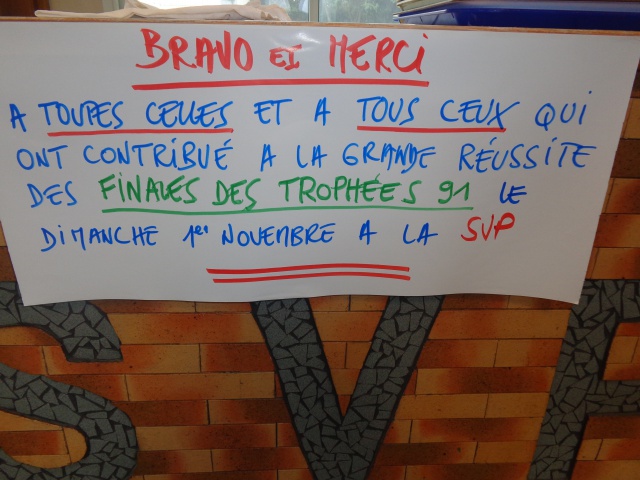 BRAVO ET MERCI
A TOUTES CELLES ET A TOUS CEUX QUI
ONT CONTRIBUÉ A LA GRANDE RÉUSSITE
DES FINALES DES TROPHÉES 91 LE
DIMANCHE 1er NOVEMBRE A LA SVP
SVP